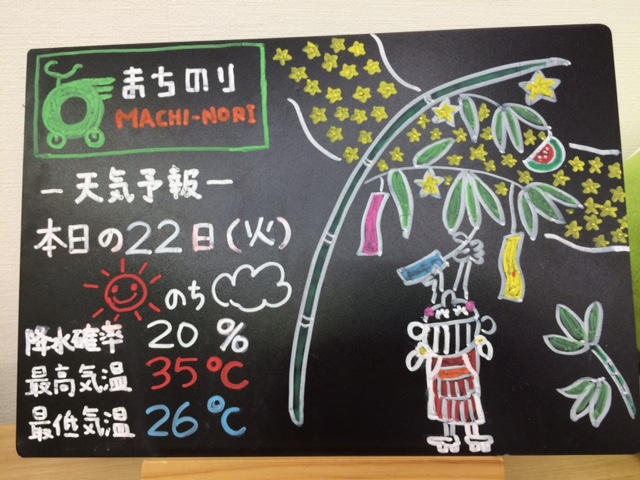 まちのり
MACHI-NORI
－天気予報－
本日の22日(火)
のち
降水確率 20 %
最高気温 35℃
最低気温 26℃